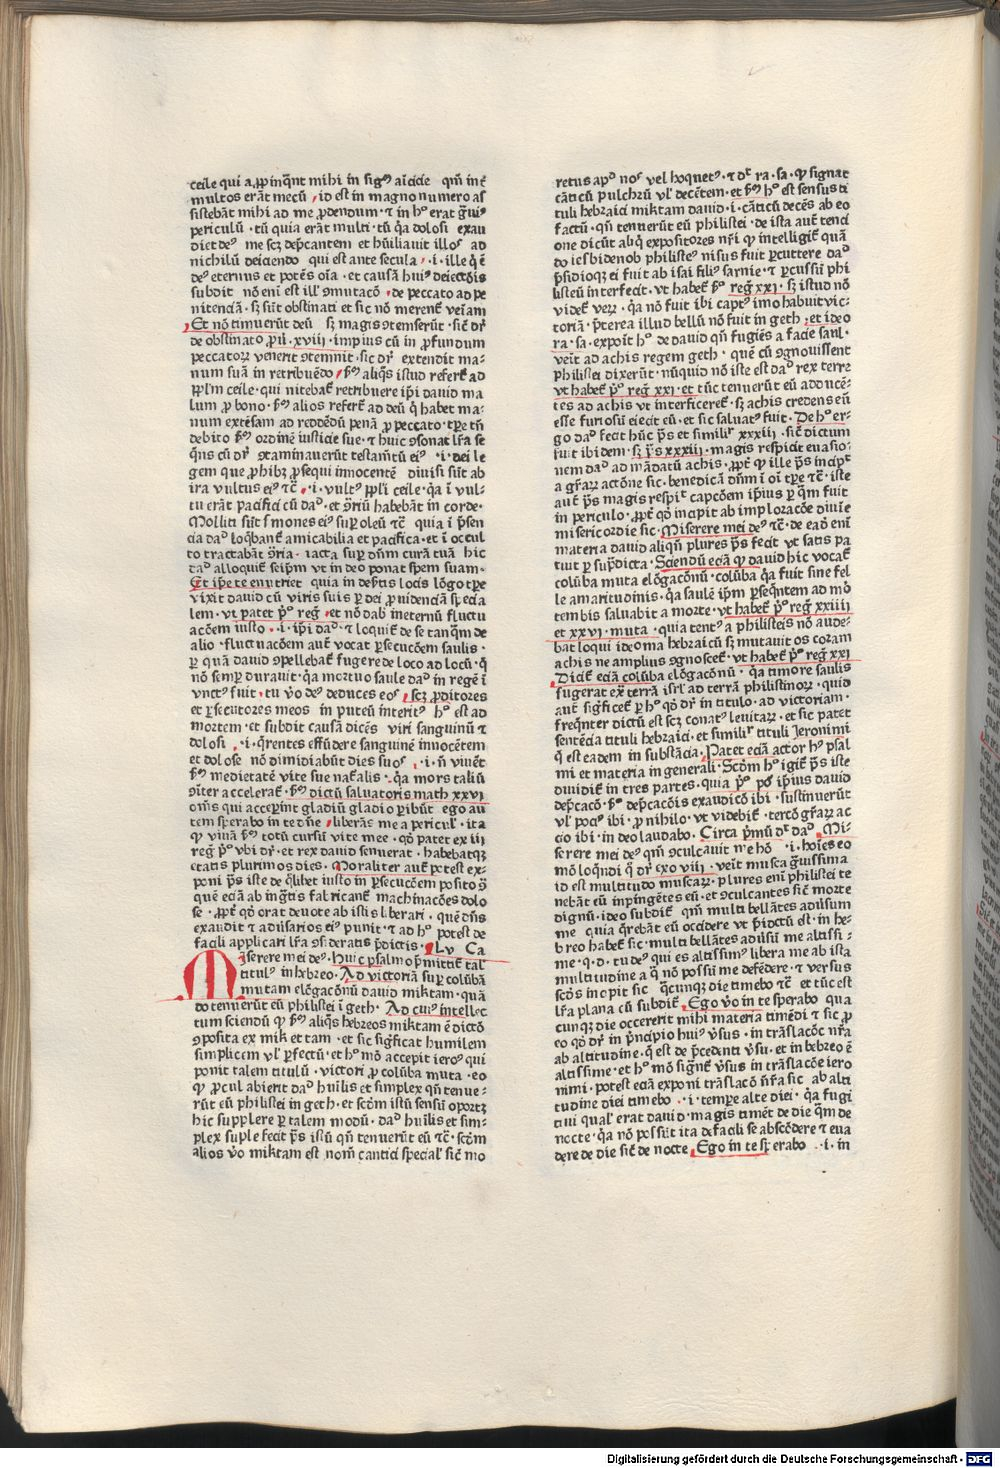 ceile qui aꝓpinq̄nt mihi in sigꝰ aĩcicie qm̄ int̄
multos erāt mecū / id est in magno numero as
sistebāt mihi ad me ꝓdendum · ⁊ in hͦ erat g̃uiꝰ
periculū · tū quia erāt multi · tū q̇a dolosi exau
diet deꝰ me scꝫ dep̃cantem et hũiliavit illos ad
nichilū deiciendo qui est ante secula / · i · ille q̇ ē
deꝰ eternus et potēs oĩa · et causā huiꝰ deiectōis
subdit nō eñi est illꝭ ꝯmutacō · de peccato ad pe
nitenciā · sꝫ sũt obstinati et sic nō merent̃ veĩam
Et nō timuerũt deū sꝫ magis ꝯtemserũt · sic̃ dr̃
de obstinato ꝓũ · xviii · impius cū in ꝓfundum
peccatoꝝ venerit ꝯtemnit · sic dr̃ extendit ma⸗
num suā in retribuēdo / ẜm aliq̃s istud refert̃ ad
ppl̃m ceile · qui nitebat̃ retribuere ip̃i david ma
lum ꝓ bono · ẜm alios refert̃ ad deũ q̇ habet ma⸗
num extēsam ad reddēdū penā ꝓ peccato · tꝑe tñ
debito ẜm ordinē iusticie sue · ⁊ huic ꝯsonat lr̃a se
q̃ns cū dr̃ ꝯtaminaverũt testam̃tũ eiꝰ · i · dei le
gem que ꝓhibꝫ ꝓsequi innocentē divisi sũt ab
ira vultus eiꝰ ⁊c̃ · i · vultꝰ ppl̃i ceile · q̇a ĩ vul⸗
tu erāt pacifici cū dad̃ · et ꝯr̃iū habebāt in corde·
Molliti sũt ẜmones eiꝰ suꝑ oleũ ⁊c̃ quia ĩ p̃sen
cia dad̃ loq̃bant̃ amicabilia et pacifica · et ĩ occul
to tractabāt ꝯr̃ia · iacta suꝑ dñm curā tuā hic
dad̃ alloquit̃ seip̃m vt in deo ponat spem suam⸗
Et ip̃e te enutriet quia in dep̃tis locis lōgo tꝑe
vixit david cū viris suis ꝑ dei ꝓvidenciā specia
lem · vt patet pͦ reg̃ · et nō dab̃ ineternũ fluctu
acōem iusto · i · ip̃i dad̃ · ⁊ loquit̃ de se tanq̃m de
alio · fluctuacōem aut̃ vocat ꝑsecucōem saulis ·
ꝑ quā david ꝯpellebat̃ fugere de loco ad locũ · q̇
nō semꝑ duravit · q̇a mortuo saule dad̃ in regē ĩ
vnctꝰ fuit · tu v̇o deꝰ deduces eos / scꝫ ꝓditores
et ꝑsecutores meos in puteũ interitꝰ hͦ est ad
mortem · et subdit causā dicēs viri sanguinũ ⁊
dolosi · i · q̃rentes effũdere sanguinē innocētem
et dolose nō dimidiabũt dies suos · i · ñ viuēt
ẜm medietatē vite sue nat̃alis · q̇a mors taliũ
ꝯiter accelerat̃ · ẜm dictũ salvatoris math xxvi
om̃s qui acceꝑint gladiũ gladio ꝑibũt ego au
tem sperabo in te dñe / liberās me a periculꝭ · ita
ꝙ vivā ẜm totũ cursũ vite mee · qd̓ patet ex iii
reg̃ pͦ vbi dr̃ · et rex david senuerat · habebatqꝫ
etatis plurimos dies · Moraliter aut̃ potest ex⸗
poni p̃s iste de q̃libet iusto in ꝑsecucōem posito ꝯ
quē eciā ab ing̃tis fabricant̃ machinacōes dolo
se · ꝓpt̃ qd̓ orat devote ab istis liberari · quē dñs
exaudit ⁊ adũsarios eiꝰ punit · ⁊ ad hͦ potest de
facili applicari lr̃a ꝯsideratis p̃dictis · Lv Ca
Miserere mei deꝰ · huic psalmo p̃mittit̃ talꝭ
titulꝰ in hebreo · Ad victoriā suꝑ colũbā
mutam elōgacōnũ david miktam · quā
do tenuerũt eũ philistei ĩ geth · Ad cuiꝰ intellec
tum sciendũ ꝙ ẜm aliq̃s hebreos miktam ē dictō
ꝯposita ex mik et tam · et sic sig̃ficat humilem
simplicem vlꝭ ꝑfectũ · et hͦ mō accepit ieroꝰ qui
ponit talem titulũ · victori ꝓ colũba muta · eo
ꝙ ꝓcul abierit dad̃ hũilis et simplex qñ tenue⸗
rũt eũ philistei in geth · et scd̃m istũ sensũ oportꝫ
hic supplere ꝑ talem modũ · dad̃ hũilis et sim⸗
plex suple fecit p̃s istũ qñ tenuerũt eũ ⁊c̃ · scd̃m
alios v̇o miktam est nom̃ cantici specialꝭ sic̃ mo
retus apd̓ nos vel hoquetꝰ · ⁊ dt̃ ra · sa · ꝙ signat
cāticũ pulchrũ vlꝭ decētem · et ẜm hͦ est sensus ti
tuli hebraici miktam david · i · cāticũ decēs ab eo
factũ · qñ tenuerũt eũ philistei · de ista aut̃ tenci
one dicũt abq̃ expositores nr̃i ꝙ intelligit̃ quā
do iesbidenob philisteꝰ nisus fuit ꝑcuttere dad̃
p̃sidioqꝫ ei fuit abisai filiꝰ sarvie · ⁊ ꝑcussũ phi
listeũ interfecit · vt habet̃ ẜm reg̃ xxi · sꝫ istud nō
videt̃ veꝝ · q̇a nō fuit ibi captꝰ imo habuit vic⸗
toriā · p̃terea illud bellũ nō fuit in geth / et ideo
ra · sa · expoĩt hͦ de david qñ fugiēs a facie saul ·
veĩt ad achis regem geth · quē cū ꝯgnovissent
philistei dixerũt · nũquid nō iste est dad̃ rex terre
vt habet̃ pͦ reg̃ xxi · et tũc tenuerũt eũ adducē⸗
tes ad achis vt interficeret̃ · sꝫ achis credens eũ
esse furiosũ eiecit eũ · et sic salvatꝰ fuit · De hͦ er⸗
go dad̃ fecit hũc p̃s et similr̃ xxxiii · sic̃ dictum
fuit ibidem · sꝫ p̃s xxxiii · magis respicit evasio⸗
nem dad̃ ad mādatũ achis · ꝓpt̃ ꝙ ille p̃s incipit
a gr̃aꝝ actōne sic · benedicā dñm ĩ oĩ tꝑe ⁊c̃ · iste
aut̃ p̃s magis respit̃ capcōem ip̃ius ꝑ q̃m fuit
in periculo · ꝓpt̃ qd̓ incipit ab imploracōe divĩe
misericordie sic · Miserere mei deꝰ ⁊c̃ · de eadẽ eñi
materia david aliq̃ñ plures p̃s fecit vt satis pa
tuit ꝑ sup̃dicta · Sciendũ eciā ꝙ david hic vocat̃
colũba muta elōgacōnũ · colũba q̇a fuit sine fel
le amaritudinis · q̇a saulē ip̃m ꝑseq̃ntem ad mō
tem bis salvabit a morte · vt habet̃ pͦ reg̃ xxiiii
et xxvi · muta · quia tentꝰ a philisteis nō aude⸗
bat loqui ideoma hebraicũ sꝫ mutavit os coram
achis ne amplius ꝯgnoscet̃ · vt habet̃ pͦ reg̃ xxi
Dicit̃ eciā colũba elōgacōnũ · q̇a timore saulis
fugerat ex̃ terrā isrl̃ ad terrā philistinoꝝ · quid
aut̃ sig̃ficet̃ ꝑ hͦ qd̓ dr̃ in titulo · ad victoriam ·
freq̃nter dictũ est scꝫ conatꝰ levitaꝝ · et sic patet
sentēcia tituli hebraici · et similr̃ tituli Jeronimi
q̇ est eadem in substācia · Patet eciā actor hꝰ psal
mi et materia in generali · Scd̃m hͦ igit̃ p̃s iste
dividit̃ in tres partes · quia pͦ poĩ ip̃ius david
dep̃cacō · ẜm dep̃cacōis exaudicō ibi · sustinuerũt
vlꝭ pociꝰ ibi · ꝓ nihilo · vt videbit̃ · tercō gr̃aꝝ ac
cio ibi · in deo laudabo · Circa p̃mũ dt̃ dad̃ · Mi⸗
serere mei deꝰ qm̄ ꝯculcavit me hō · i · hoĩes eo
mō loq̃ndi q̇ dr̃ exo viii · veĩt musca g̃uissima
id est multitudo muscaꝝ · plures eñi philistei te
nebāt eũ inpingētes eũ · et ꝯculcantes sic̃ morte
dignũ · ideo subdit̃ qm̄ multi bellātes adũsum
me quia q̃rebāt eũ occidere vt p̃dictũ est · in he⸗
breo habet̃ sic · multi bellātes adũsũ me altissi⸗
me · q · d · tu deꝰ qui es altissimꝰ libera me ab ista
multitudine a q̇ nō possũ me defēdere · ⁊ versus
scd̃s incipit sic q̃cunqꝫ die timebo ⁊c̃ et tũc est
lr̃a plana cū subdit̃ · Ego v̇o in te sperabo qua
cunqꝫ die occererit mihi materia timēdi ⁊ sic ꝓ
eo qd̓ dr̃ in p̃ncipio huiꝰ v̓sus · in trāslacōe nr̃a
ab altitudine · q̇ est de p̃cedenti v̓su · et in hebreo ē
altissime · et hͦ mō signat̃ v̓sus in trāslacōe iero
nimi · potest eciā exponi trāslacō nr̃a sic ab alti
tudine diei timebo · i · tempe alte diei · q̇a fugi
tivi qualꝭ erat david · magis timēt de die q̃m de
nocte · q̇a nō possũt ita de facili se abscōdere ⁊ eva
dere de die sic̃ de nocte · Ego in te sperabo · i · in
Digitalisierung gefördert durch die Deutsche Forschungsgemeinschaft · DFG